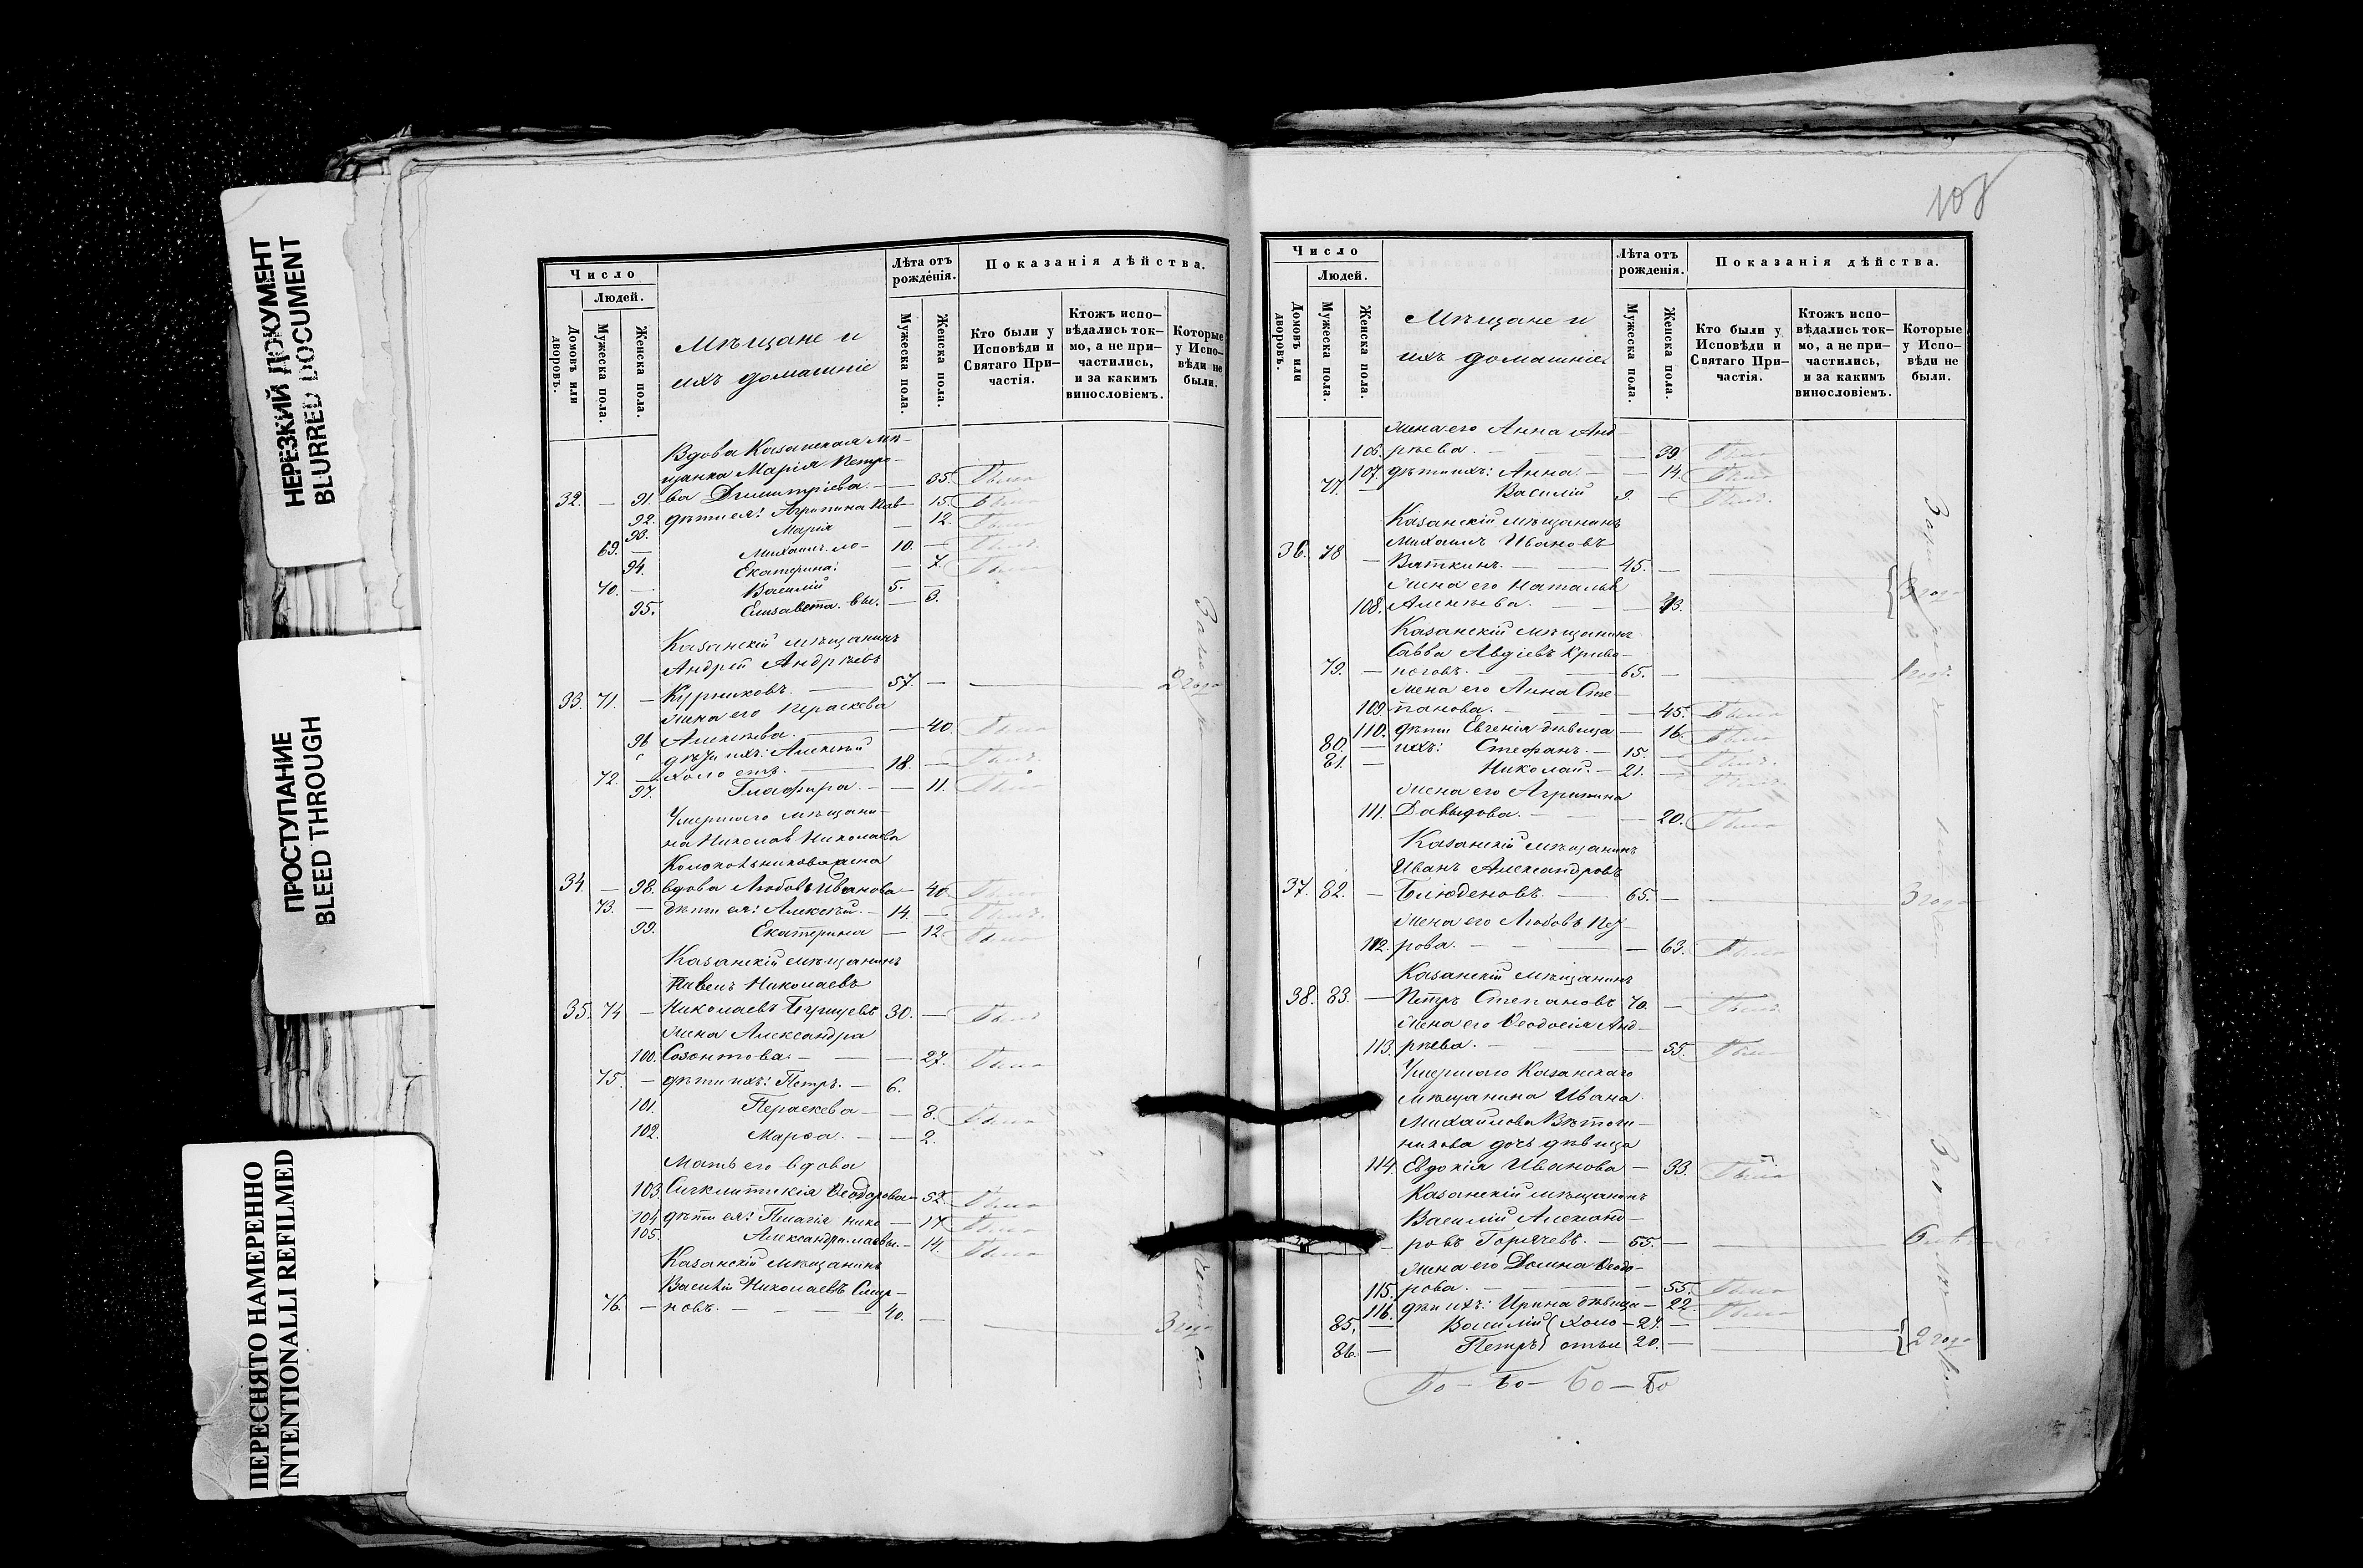 НЕРЕЗКИЙ ДОКУМЕНТ
BLURRED DOCUMENT
ПРОСТУПАНИЕ
BLEED THROUGH
ПЕРЕСНЯТО НАМЕРЕННО
INTENTIONALLI REFILMED
Число
Людей.
Домовъ или дворовъ.
Мужеска пола.
Женска пола.
Мѣщане и
ихъ домашніе
Лѣта отъ рожденія.
Мужеска пола.
Женска пола.
Показанія дѣйства.
Кто были у Исповѣди и Святаго При-частія.
Ктожъ испо-вѣдались ток-мо, а не при-частились, и за какимъ винословіемъ.
Которые у Испо-вѣди не были.
Вдова Казанская мѣ-
щанка Марія Петро-
32. — 91. ва Димитріева. — 35. Была
92. дѣти ея: Агрипина — 15. Была
93. Марія — 12. Была
69. — Михаилъ 10. — Былъ
94. Екатерина — 7. Была
70. — Василій 5. —
95. Елизавета — 3.
Казанскій мѣщанинъ
Андрей Андреевъ
33. 71. — Курниковъ. — 57. — 2 года
жена его Параскева
96 Алексѣева. — 40. Была
дѣти ихъ: Алексѣй
72. — холостъ. — 18. — Былъ.
97. Глафира. — 11. Была
Умершаго мѣщани-
на Николая Николаева
Колокольникова жена
34. — 98. вдова Любовь Иванова — 40. Была
73. — дѣти ея: Алексѣй. — 14. — Былъ.
99. Екатерина — 12. Была
Казанскій мѣщанинъ
Павелъ Николаевъ
35. 74 — Николаевъ 30. — Былъ
жена Александра
100. Созонтова. — 27. Была
75. — дѣти ихъ: Петръ. — 6.
101. Параскева — 8. Была
102. Марѳа. — 2.
Мать его вдова
103. Ѳеодорова — 52. Была
104 дѣти ея: Пелагія — 17. Была
105. Александра — 14. Была
Казанскій мѣщанинъ
Василій Николаевъ Смир-
76. — новъ. — 40. — 3 года
108
Число
Людей.
Домовъ или дворовъ.
Мужеска пола.
Женска пола.
Мѣщане и
ихъ домашніе
Лѣта отъ рожденія.
Мужеска пола.
Женска пола.
Показанія дѣйства.
Кто были у Исповѣди и Святаго При-частія.
Ктожъ испо-вѣдались ток-мо, а не при-частились, и за какимъ винословіемъ.
Которые у Испо-вѣди не были.
жена его Анна Анд-
106. рѣева. — 39. Была
107. дѣти ихъ: Анна. — 14. Была
77. — Василій 9. — Былъ.
Казанскій мѣщанинъ
Михаилъ Ивановъ
36. 78 — Вяткинъ. — 45. —
жена его Наталья 3 года
108. Алексѣева. — 43.
Казанскій мѣщанинъ
Савва Авдіевъ Криво-
79. —ноговъ. — 65. — 1 годъ.
жена его Анна Сте-
109. панова. — 45. Была
110. дѣти Евгенія дѣвица — 16. Была
80. — ихъ: Стефанъ. — 15. — Былъ.
81. — Николай. — 21. — Былъ.
жена его Агрипина
111. Давыдова. — 20. Была
Казанскій мѣщанинъ
Иванъ Александровъ
37. 82. — Блюденовъ. — 65. — 3 года
жена его Любовь Пет-
112. рова. — 63. Была
Казанскій мѣщанинъ
38. 83. — Петръ Степановъ 70. — Былъ.
жена его Ѳеодосія Анд-
113. рѣева. — 55. Была
Умершаго Казанскаго
мѣщанина Ивана
Михайлова
никова дочь дѣвица
114. Евдокія Иванова — 33. Была
Казанскій мѣщанинъ
Василій Александ-
— ровъ Горячевъ. — 55. — 6 лѣтъ
жена его Домна Ѳеодо-
115. рова. — 55. Была
116. дѣти ихъ: Ирина дѣвица — 22. Была
85. — Василій холо- 24. —
86. — Петръ стые 20. — 2 года
Бо — Бо — Бо — Бо